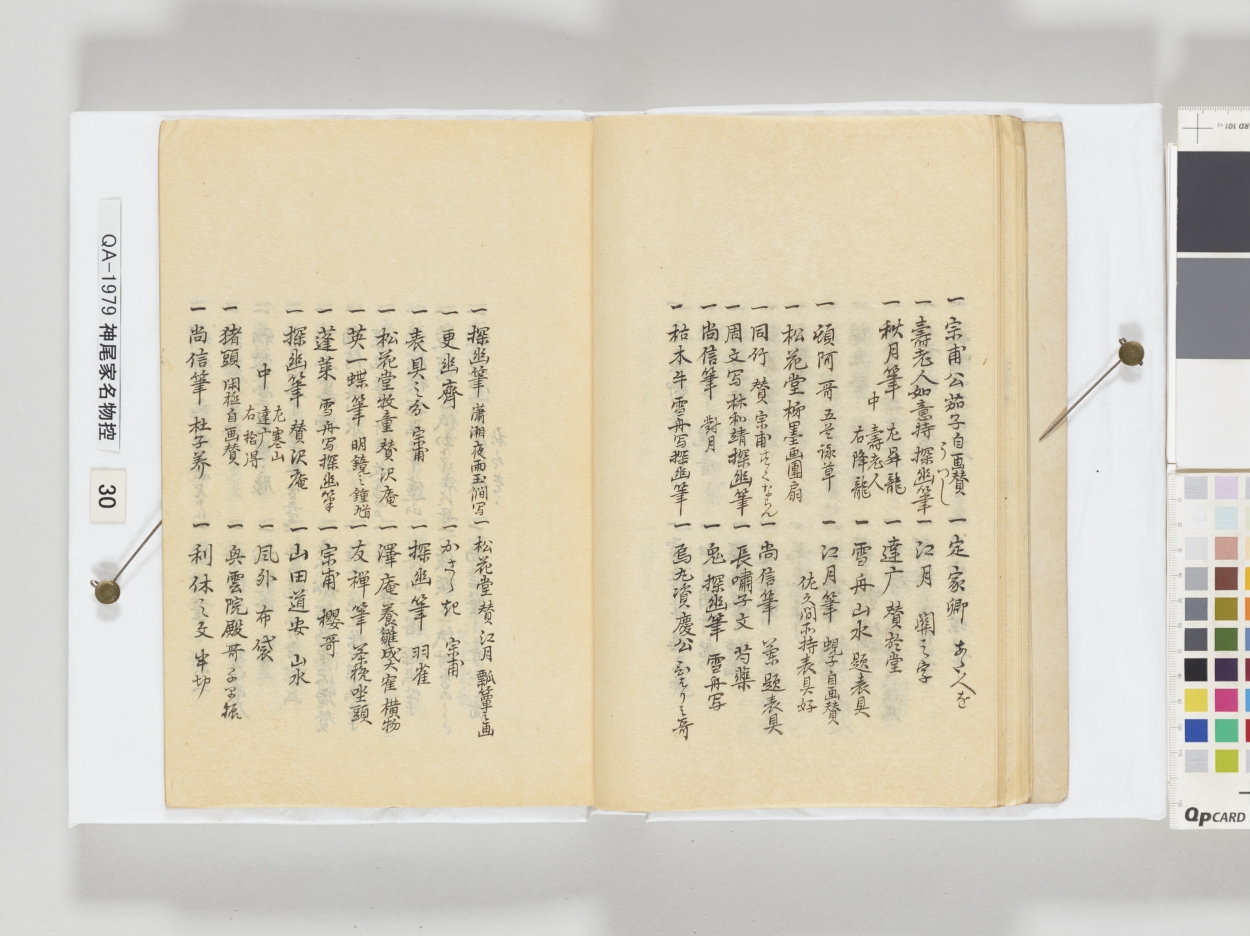 一 宗甫公茄子自画賛 うつし
一 壽老人如意持 探幽筆
一 秋月筆 中 壽老人 左昇龍 右降龍
一 頓阿哥 五首詠草
一 松花堂 極墨画團扇
一 同行 賛 宗甫
一 周文写 林和靖 探幽筆
一 尚信筆 對月
一 枯木牛 雪舟写 探幽筆
一 定家卿 あふ人を
一 江月 關之字
一 達广 賛 於堂
一 雪舟 山水 題表具
一 江月筆 蜆子自画賛
佐久間所持 表具好
一 尚信筆 題表具
一 長嘯子文 芍薬
一 鬼 探幽筆 雪舟写
一 烏丸資慶公 哥
一 探幽筆 瀟湘夜雨 玉澗写
一 更幽齊
一 表具之分 宗甫
一 松花堂 牧童 賛 沢庵
一 英一蝶筆 明鏡之鐘馗
一 蓬莱 雪舟写 探幽筆
一 探幽筆 賛 沢庵
中 達广 左寒山 右拾得
一 猪頭 閑極自画賛
一 尚信筆 杜子美
一 松花堂 賛 江月 瓢箪之画
一 かささき 宗甫
一 探幽筆 羽雀
一 澤庵 養雛成大寉 横物
一 友禅筆 坐頭
一 宗甫 櫻哥
一 山田道安 山水
一 風外 布袋
一 興雲院殿哥
一 利休之文 半切
QA-1979 神尾家名物控
30
QPCARD